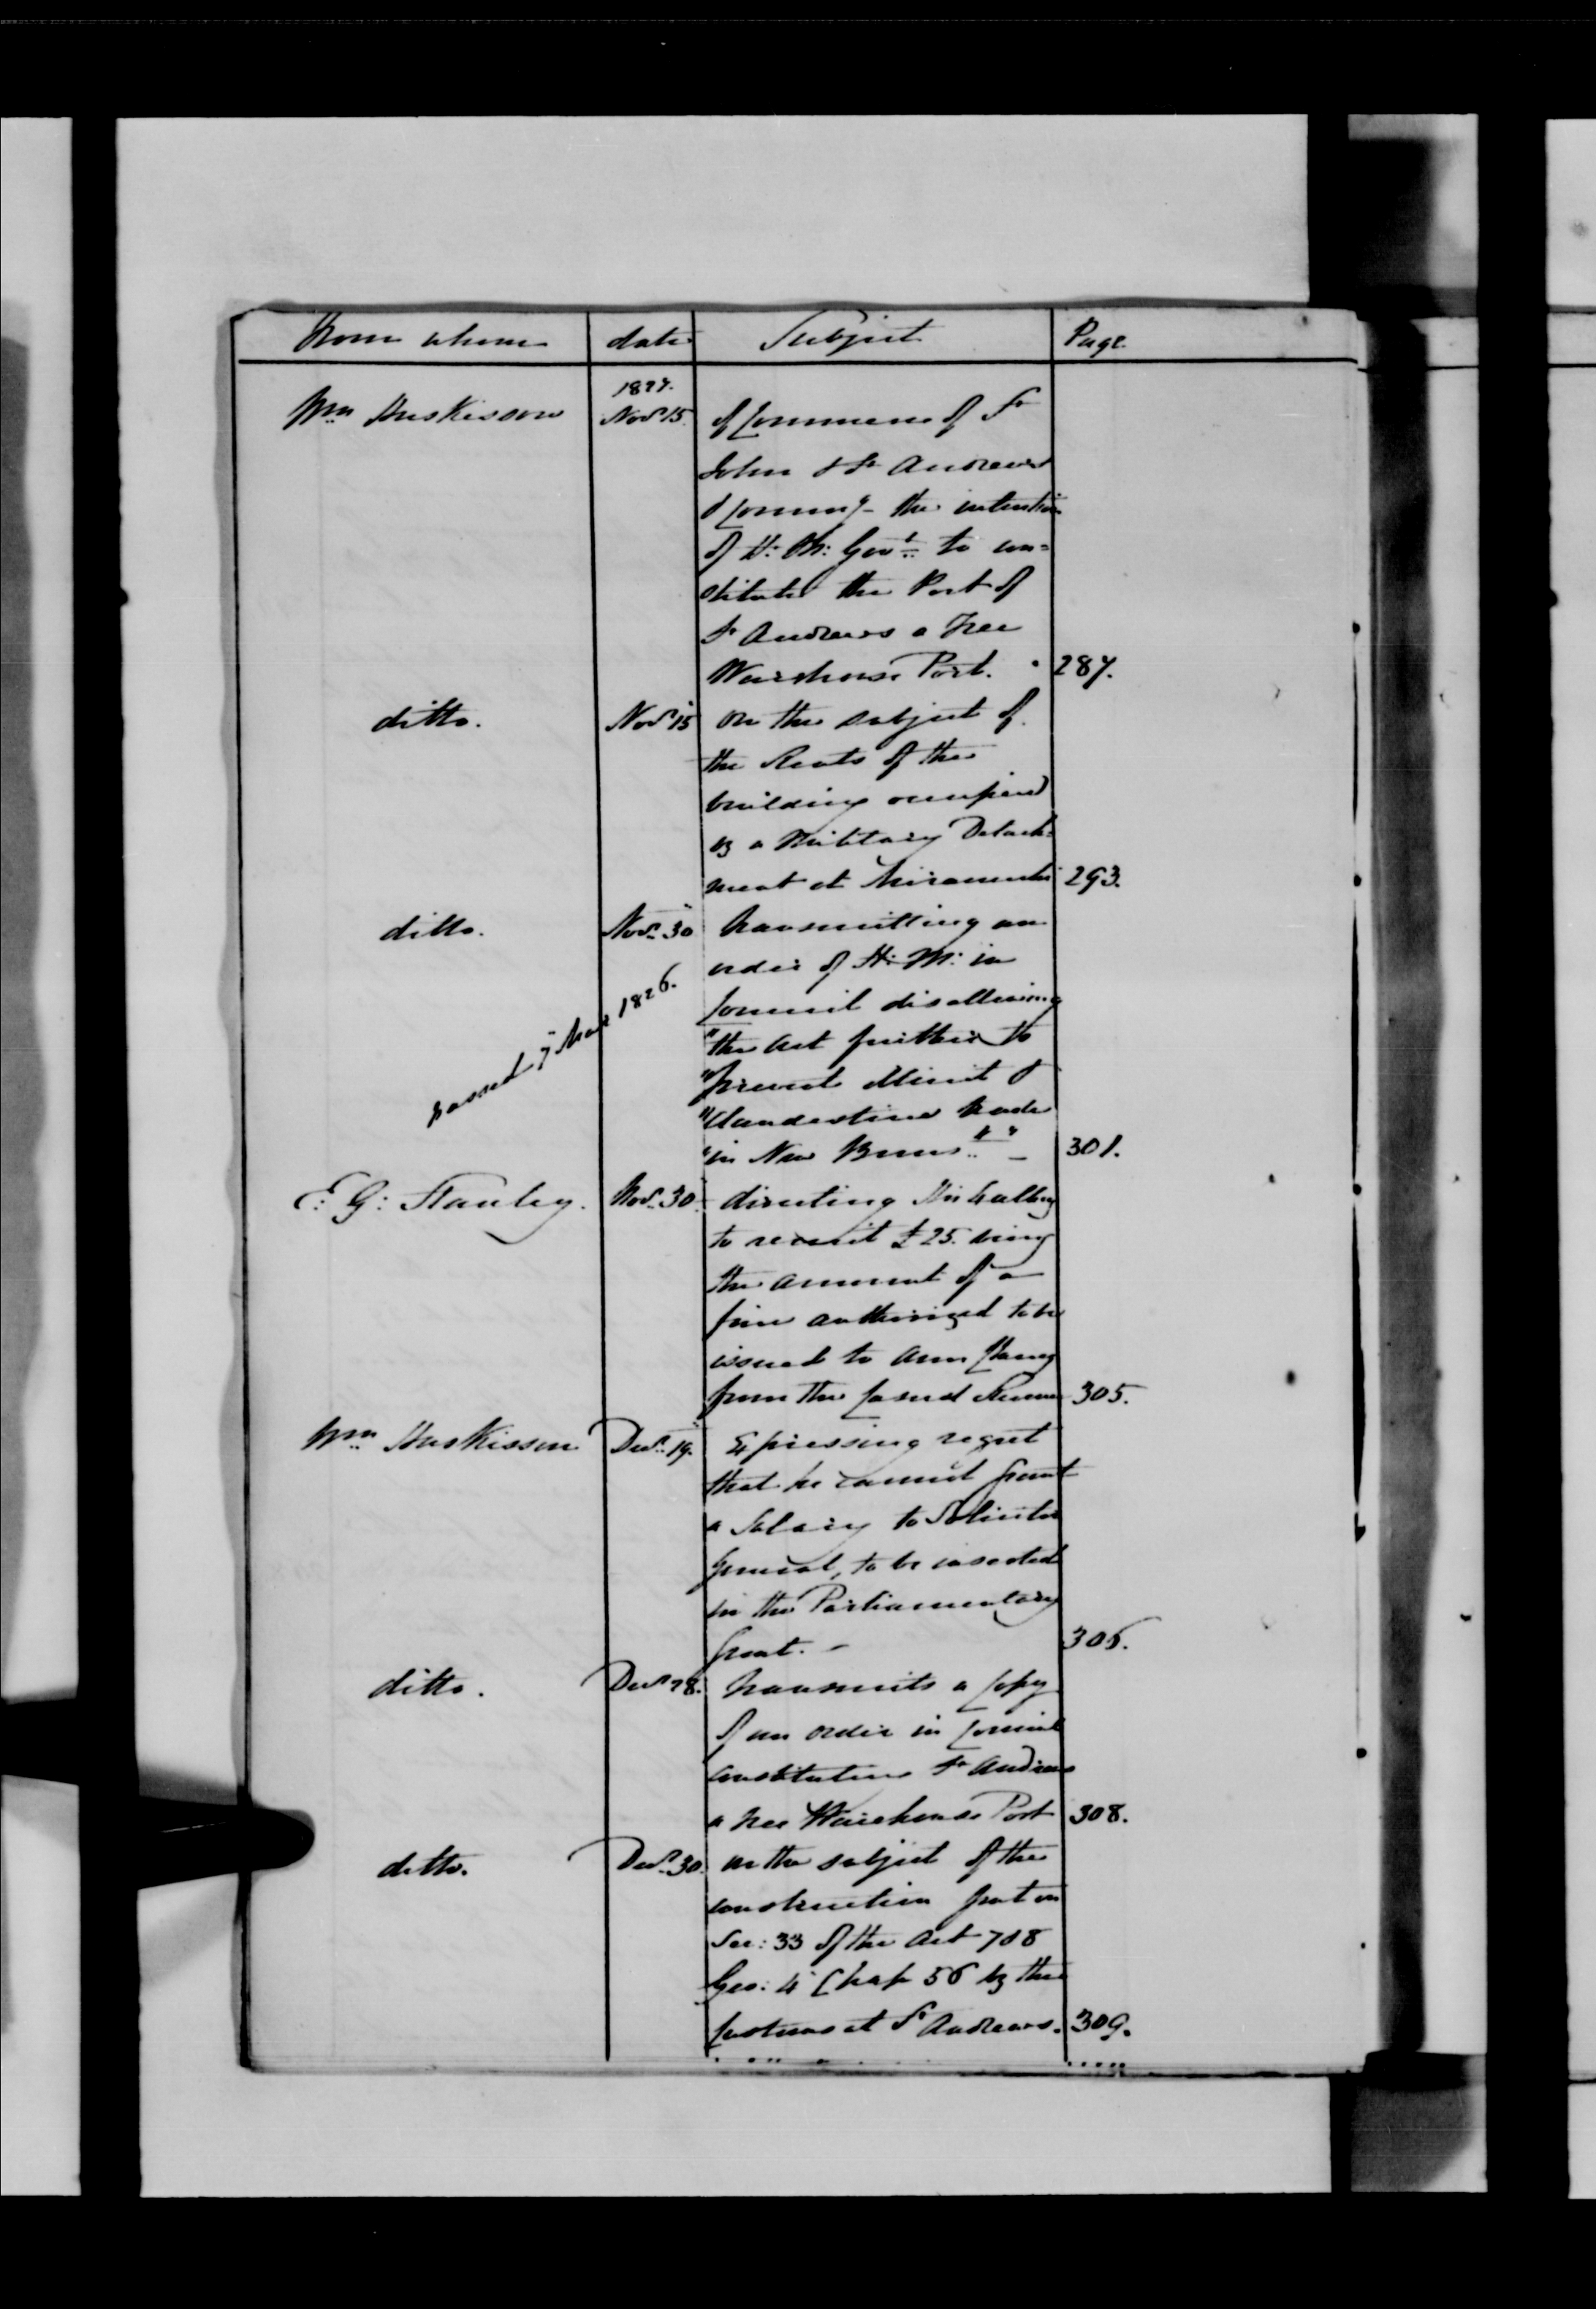 From whom date Subject Page.
1827.
Wm Huskisson Novr 15. of Commerce of St
John & St Andrews
& Commg the intention
of H: M: Govt to con=
stitute the Port of
St Andrews a Free
Warehouse Port. 287.
ditto. Novr 15 On the subject of
the Rents of the
building occupied
by a Military Detach=
ment at Miramichi 293.
ditto. Novr 30 transmitting an
order of H: M: in
Council disallowing
passed 7 Mar 1826.
"the Act further to
"prevent illicit &
"Clandestine trade
"in New Brunsk" 301.
E: G: Stanley. Novr 30. directing His Excelly
to remit £25. being
the amount of a
fine authorized to be
issued to Ann
from the Casual Revenue 305.
Wm Huskisson Decr 19. Expressing regret
that he cannot grant
a Salary to Solicitor
General, to be inserted
in the Parliamentary
Grant. 306.
ditto. Decr 28. transmits a Copy
of an order in Council
constituting St Andrews
a free Warehouse Port 308.
ditto. Decr 30. on the subject of the
construction put on
Sec: 33 of the Act 7 & 8
Geo: 4 Chap 56 by the
Customs at St Andrews. 309.